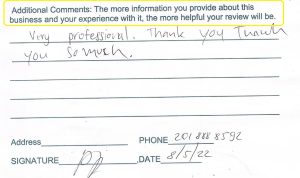 Additional Comments: The more information you provide about this
business and your experience with it, the more helpful your review will be.
Very professional. Thank you Thank
you so much.
Address
PHONE 201 888 8592
SIGNATURE
DATE 8/5/22